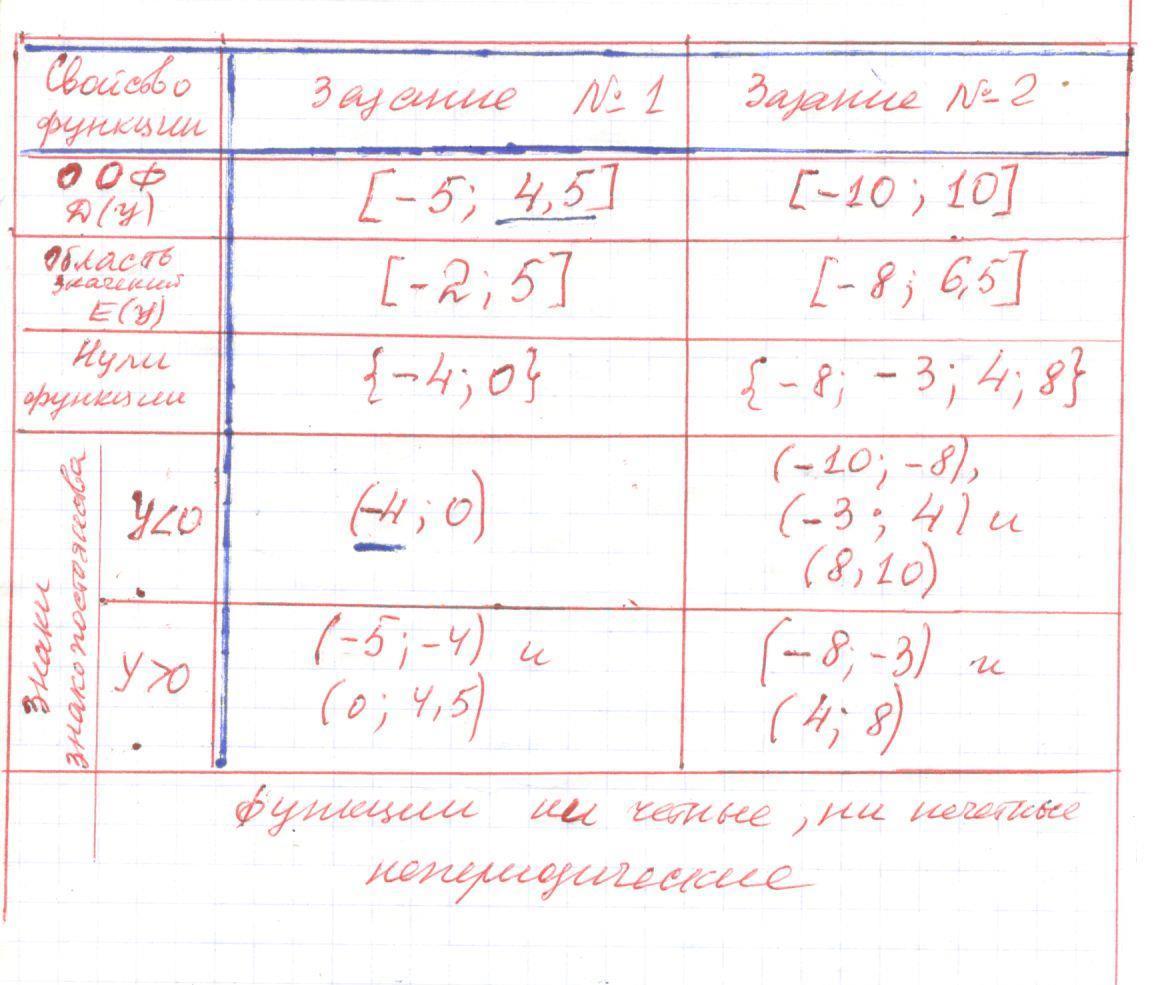 Свойство функции
Задание № 1
Задание № 2
ООФ
D(y)
[-5; 4,5]
[-10; 10]
Область
значений
E(y)
[-2; 5]
[-8; 6,5]
Нули
функции
{-4; 0}
{-8; -3; 4; 8}
Знаки
знакопостоянсва
y<0
(-4; 0)
(-10; -8),
(-3; 4) и
(8, 10)
y>0
(-5; -4) и
(0; 4,5)
(-8; -3) и
(4; 8)
функции ни четные, ни нечетные
непериодические